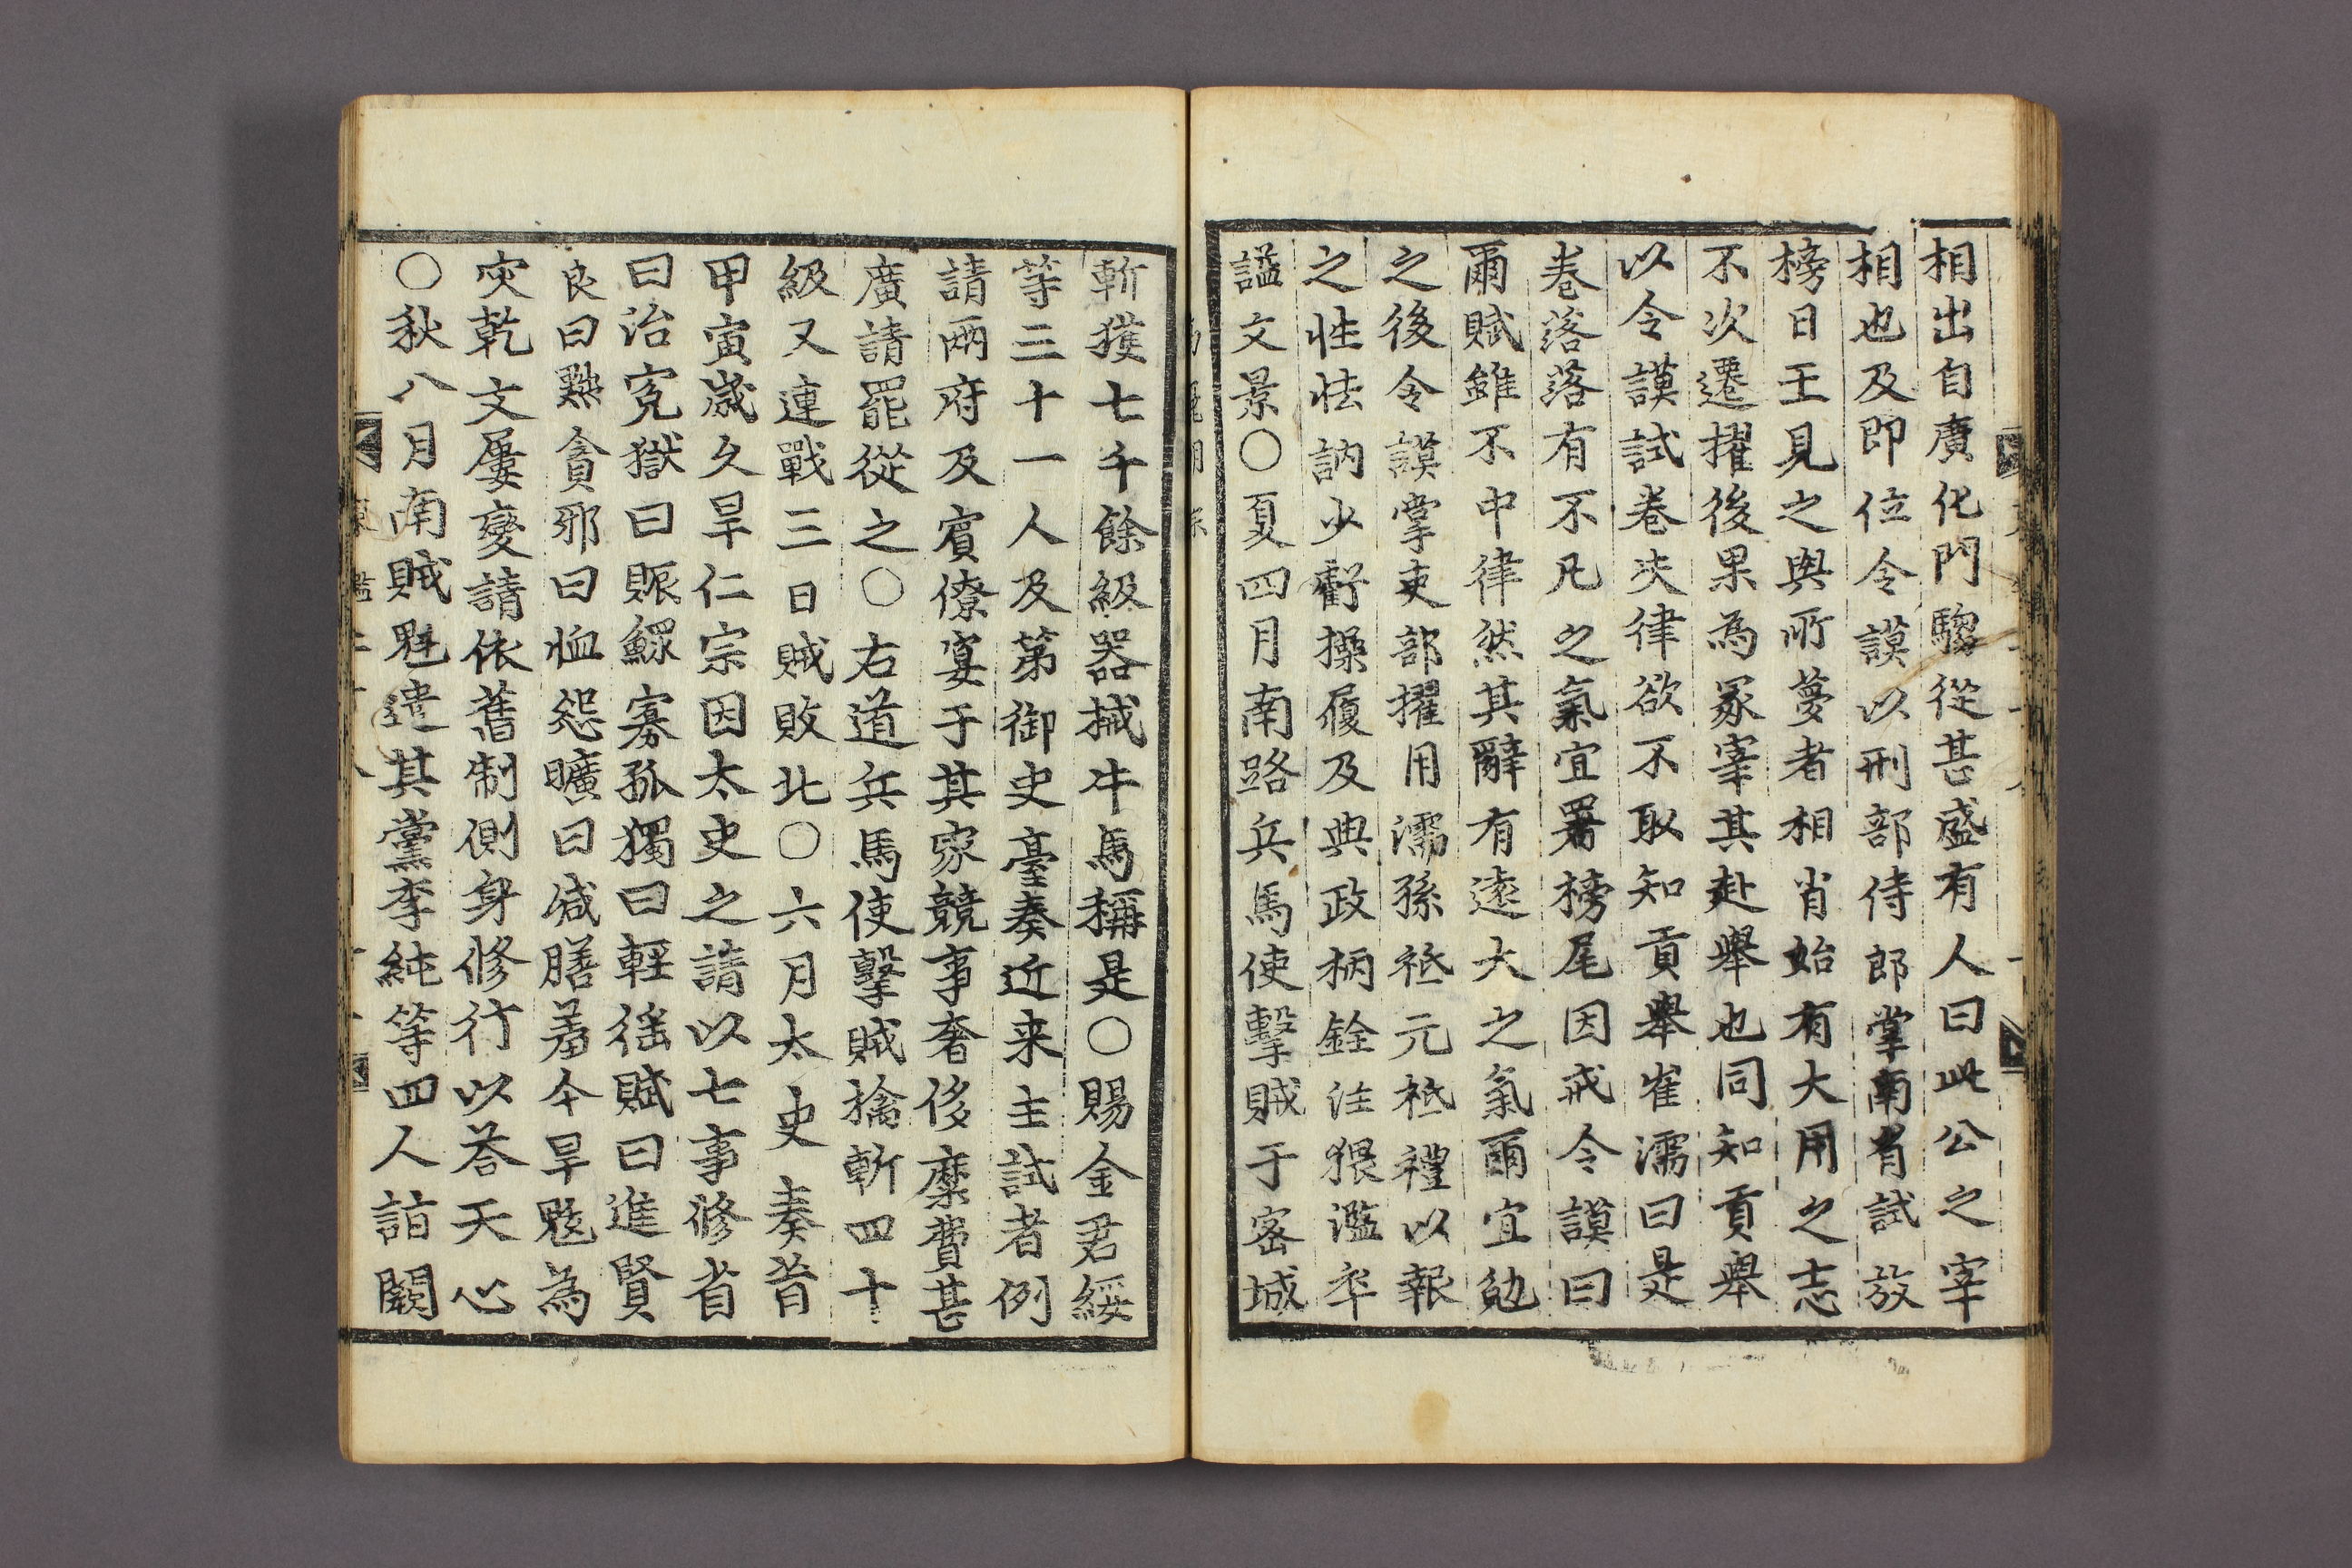 相出自廣化門騶從甚盛有人曰此公之宰
相也及即位令謨以刑部侍郎掌南省試放
榜日王見之與所夢者相肖始有大用之志
不次遷擢後果為冢宰其赴舉也同知貢舉
以令謨試卷失律欲不取知貢舉崔濡曰是
卷落落有不凡之氣宜署榜尾因戒令謨曰
爾賦雖不中律然其辭有遠大之氣爾宜勉
之後令謨掌吏部擢用濡孫祗元祗禮以報
之性怯訥少虧操履及典政柄銓注猥濫卒
謚文景○夏四月南路兵馬使擊賊于密城
斬獲七千餘級器械牛馬稱是○賜金君綏
等三十一人及第御史臺奏近来主試者例
請兩府及賓僚宴于其家競事奢侈糜費甚
廣請罷從之○右道兵馬使擊賊擒斬四十
級又連戰三日賊敗北○六月太史奏昔
甲寅歲久旱仁宗因太史之請以七事修省
曰治寃獄曰賑鰥寡孤獨曰輕徭賦曰進賢
良曰黜貪邪曰恤怨曠曰減膳羞今旱魃為
灾乾文屢變請依舊制側身修行以荅天心
○秋八月南賊魁遣其黨李純等四人詣闕